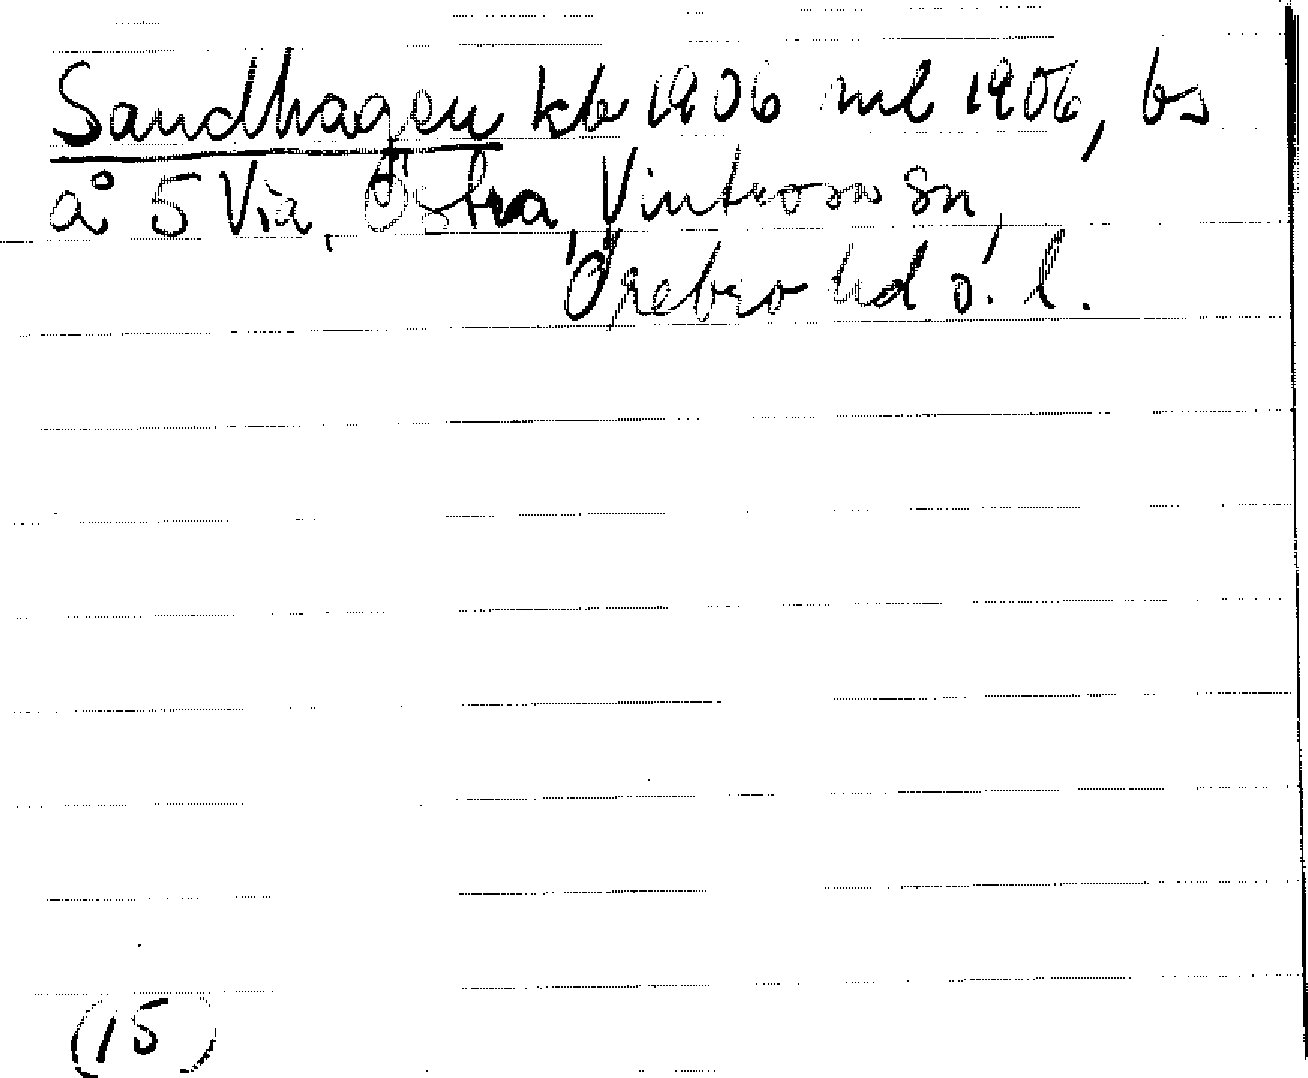 Sandhagen kb 1906 ml 1906, bs
å 5 Via, Östra, Vintrosa sn,
Örebro hd ö. l.
(15)